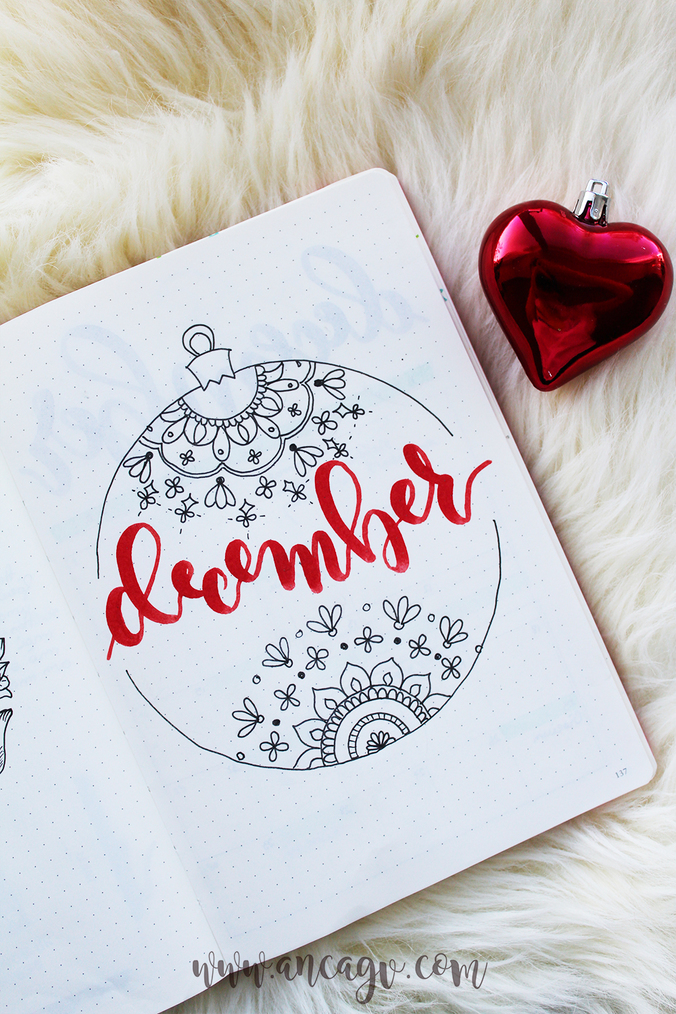 december
137
www.ancagv.com